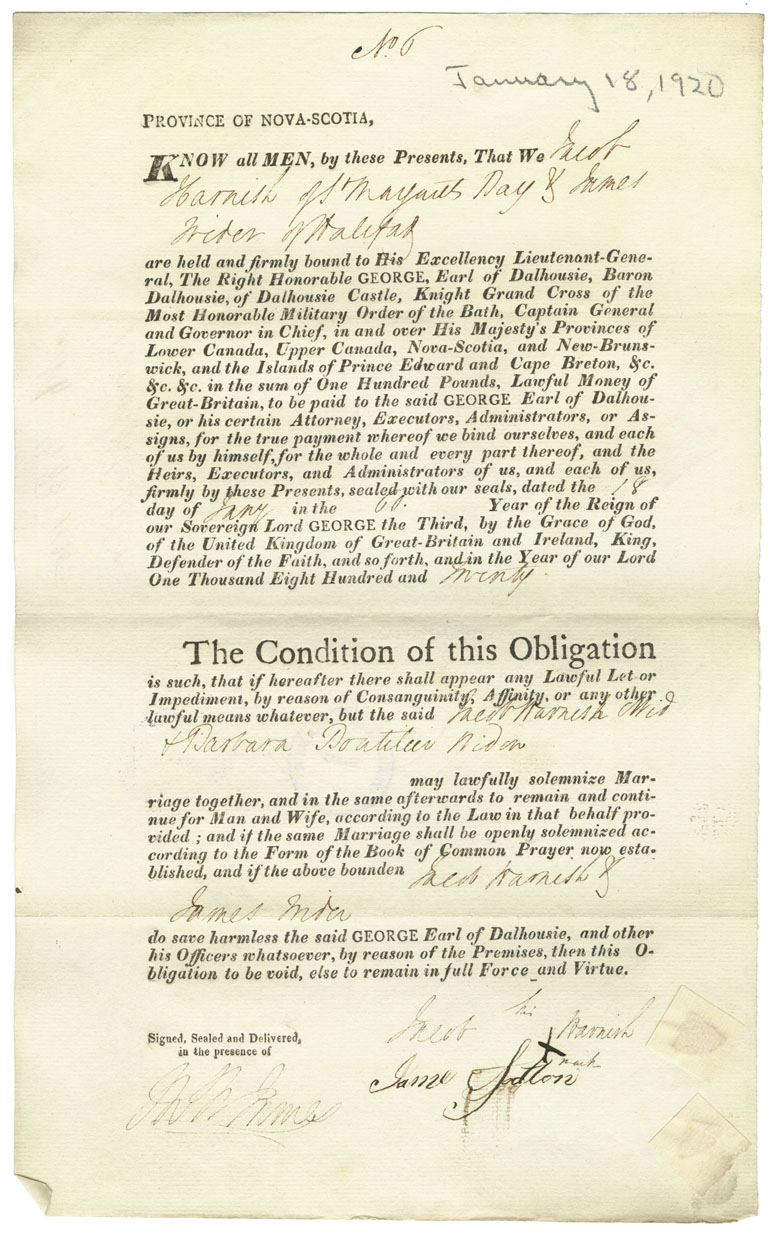 No. 6
January 18, 1920
PROVINCE OF NOVA-SCOTIA,
KNOW all MEN, by these Presents, That We Jacob
Harnish of St Margarets Bay & James
of Halifax
are held and firmly bound to His Excellency Lieutenant-Gene-
ral, The Right Honorable GEORGE, Earl of Dalhousie, Baron
Dalhousie, of Dalhousie Castle, Knight Grand Cross of the
Most Honorable Military Order of the Bath, Captain General
and Governor in Chief, in and over His Majesty's Provinces of
Lower Canada, Upper Canada, Nova-Scotia, and New-Bruns-
wick, and the Islands of Prince Edward and Cape Breton, &c.
&c. &c. in the sum of One Hundred Pounds, Lawful Money of
Great-Britain, to be paid to the said GEORGE Earl of Dalhou-
sie, or his certain Attorney, Executors, Administrators, or As-
signs, for the true payment whereof we bind ourselves, and each
of us by himself, for the whole and every part thereof, and the
Heirs, Executors, and Administrators of us, and each of us,
firmly by these Presents, sealed with our seals, dated the 18
day of Jany in the 60. Year of the Reign of
our Sovereign Lord GEORGE the Third, by the Grace of God,
of the United Kingdom of Great-Britain and Ireland, King,
Defender of the Faith, and so forth, and in the Year of our Lord
One Thousand Eight Hundred and twenty.
The Condition of this Obligation
is such, that if hereafter there shall appear any Lawful Let or
Impediment, by reason of Consanguinity, Affinity, or any other
lawful means whatever, but the said Jacob Harnish Wid
& Barbara Boutilier Widow
may lawfully solemnize Mar-
riage together, and in the same afterwards to remain and conti-
nue for Man and Wife, according to the Law in that behalf pro-
vided ; and if the same Marriage shall be openly solemnized ac-
cording to the Form of the Book of Common Prayer now esta-
blished, and if the above bounden Jacob Harnish &
James
do save harmless the said GEORGE Earl of Dalhousie, and other
his Officers whatsoever, by reason of the Premises, then this O-
bligation to be void, else to remain in full Force and Virtue.
Signed, Sealed and Delivered,
in the presence of
Jacob his X mark Harnish
James